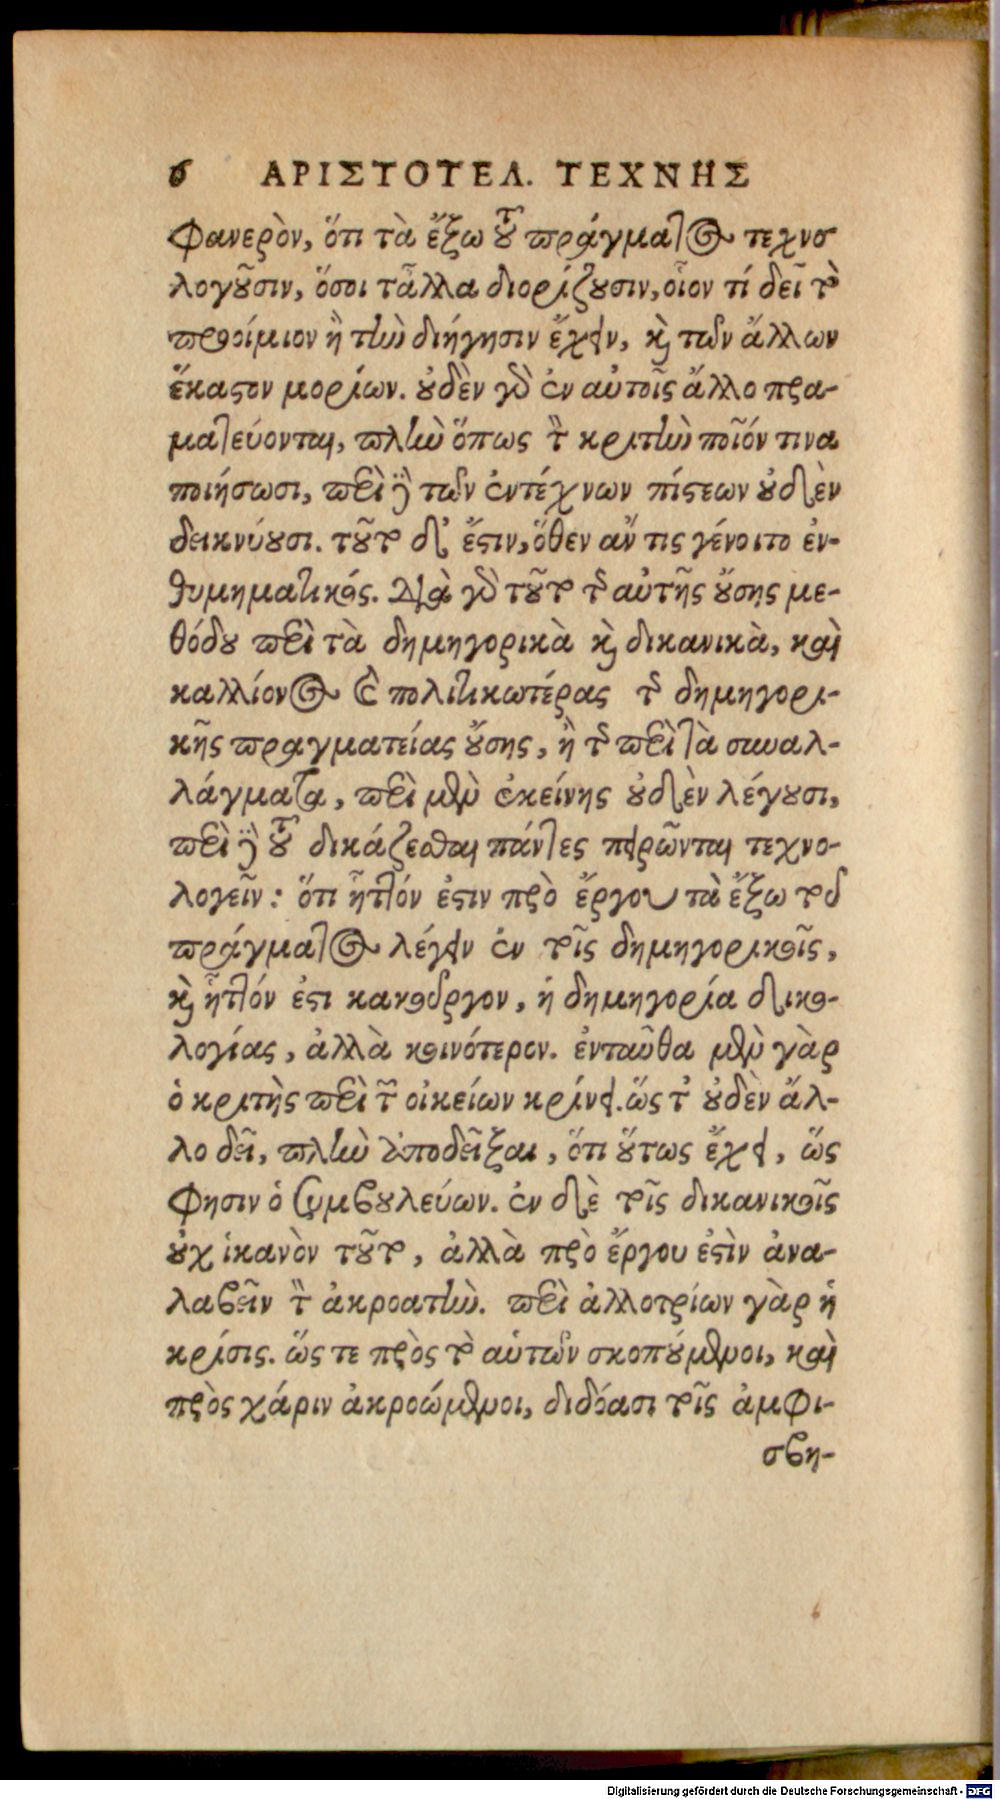 6 ΑΡΙΣΤΟΤΕΛ. ΤΕΧΝΗΣ
φανερὸν, ὅτι τὰ ἔξω τοῦ πράγματος τεχνο
λογοῦσιν, ὅσοι τἆλλα διορίζουσιν, οἷον τί δεῖ τὸ
προοίμιον ἢ τὴν διήγησιν ἔχειν, καὶ τῶν ἄλλων
ἕκαστον μορίων. οὐδὲν γὰρ ἐν αὐτοῖς ἄλλο πρα-
ματεύονται, πλὴν ὅπως τὸν κριτὴν ποῖόν τινα
ποιήσωσι, περὶ δὲ τῶν ἐντέχνων πίστεων οὐδὲν
δεικνύουσι. τοῦτο δ' ἔστιν, ὅθεν ἄν τις γένοιτο ἐν-
θυμηματικός. Διὰ γὰρ τοῦτο τῆς αὐτῆς οὔσης με-
θόδου περὶ τὰ δημηγορικὰ καὶ δικανικὰ, καὶ
καλλίονος καὶ πολιτικωτέρας τῆς δημηγορι-
κῆς πραγματείας οὔσης, ἢ τῆς περὶ τὰ συναλ-
λάγματα, περὶ μὲν ἐκείνης οὐδὲν λέγουσι,
περὶ δὲ τοῦ δικάζεσθαι πάντες πειρῶνται τεχνο-
λογεῖν: ὅτι ἧττόν ἐστιν πρὸ ἔργου τὰ ἔξω τοῦ
πράγματος λέγειν ἐν τοῖς δημηγορικοῖς,
καὶ ἧττόν ἐστι κακοῦργον, ἡ δημηγορία δικο-
λογίας, ἀλλὰ κοινότερον. ἐνταῦθα μὲν γὰρ
ὁ κριτὴς περὶ τῶν οἰκείων κρίνει. ὥστ' οὐδὲν ἄλ-
λο δεῖ, πλὴν ἀποδεῖξαι, ὅτι οὕτως ἔχει, ὥς
φησιν ὁ συμβουλεύων. ἐν δὲ τοῖς δικανικοῖς
οὐχ ἱκανὸν τοῦτο, ἀλλὰ πρὸ ἔργου ἐστὶν ἀνα-
λαβεῖν τὸν ἀκροατήν. περὶ ἀλλοτρίων γὰρ ἡ
κρίσις. ὥς τε πρὸς τὸ αὑτῶν σκοπούμενοι, καὶ
πρὸς χάριν ἀκροώμενοι, διδόασι τοῖς ἀμφι-
σβη-
Digitalisierung gefördert durch die Deutsche Forschungsgemeinschaft - DFG